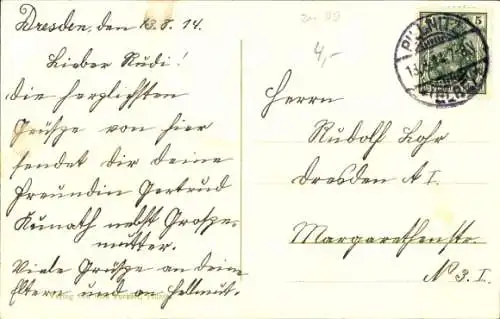 Dresden, den 13.8.14.
Lieber Rudi!
Die herzlichsten
Grüsze von hier
sendet dir deine
Freundin Gertrud
Kunath nebst Grosze-
mutter.
Viele Grüsze an deine
Eltern und an Hellmut.
4,-
5
PILLNITZ
Herrn
Rudolf Lohr
Dresden A I.
Margarethenstr.
No 3. I